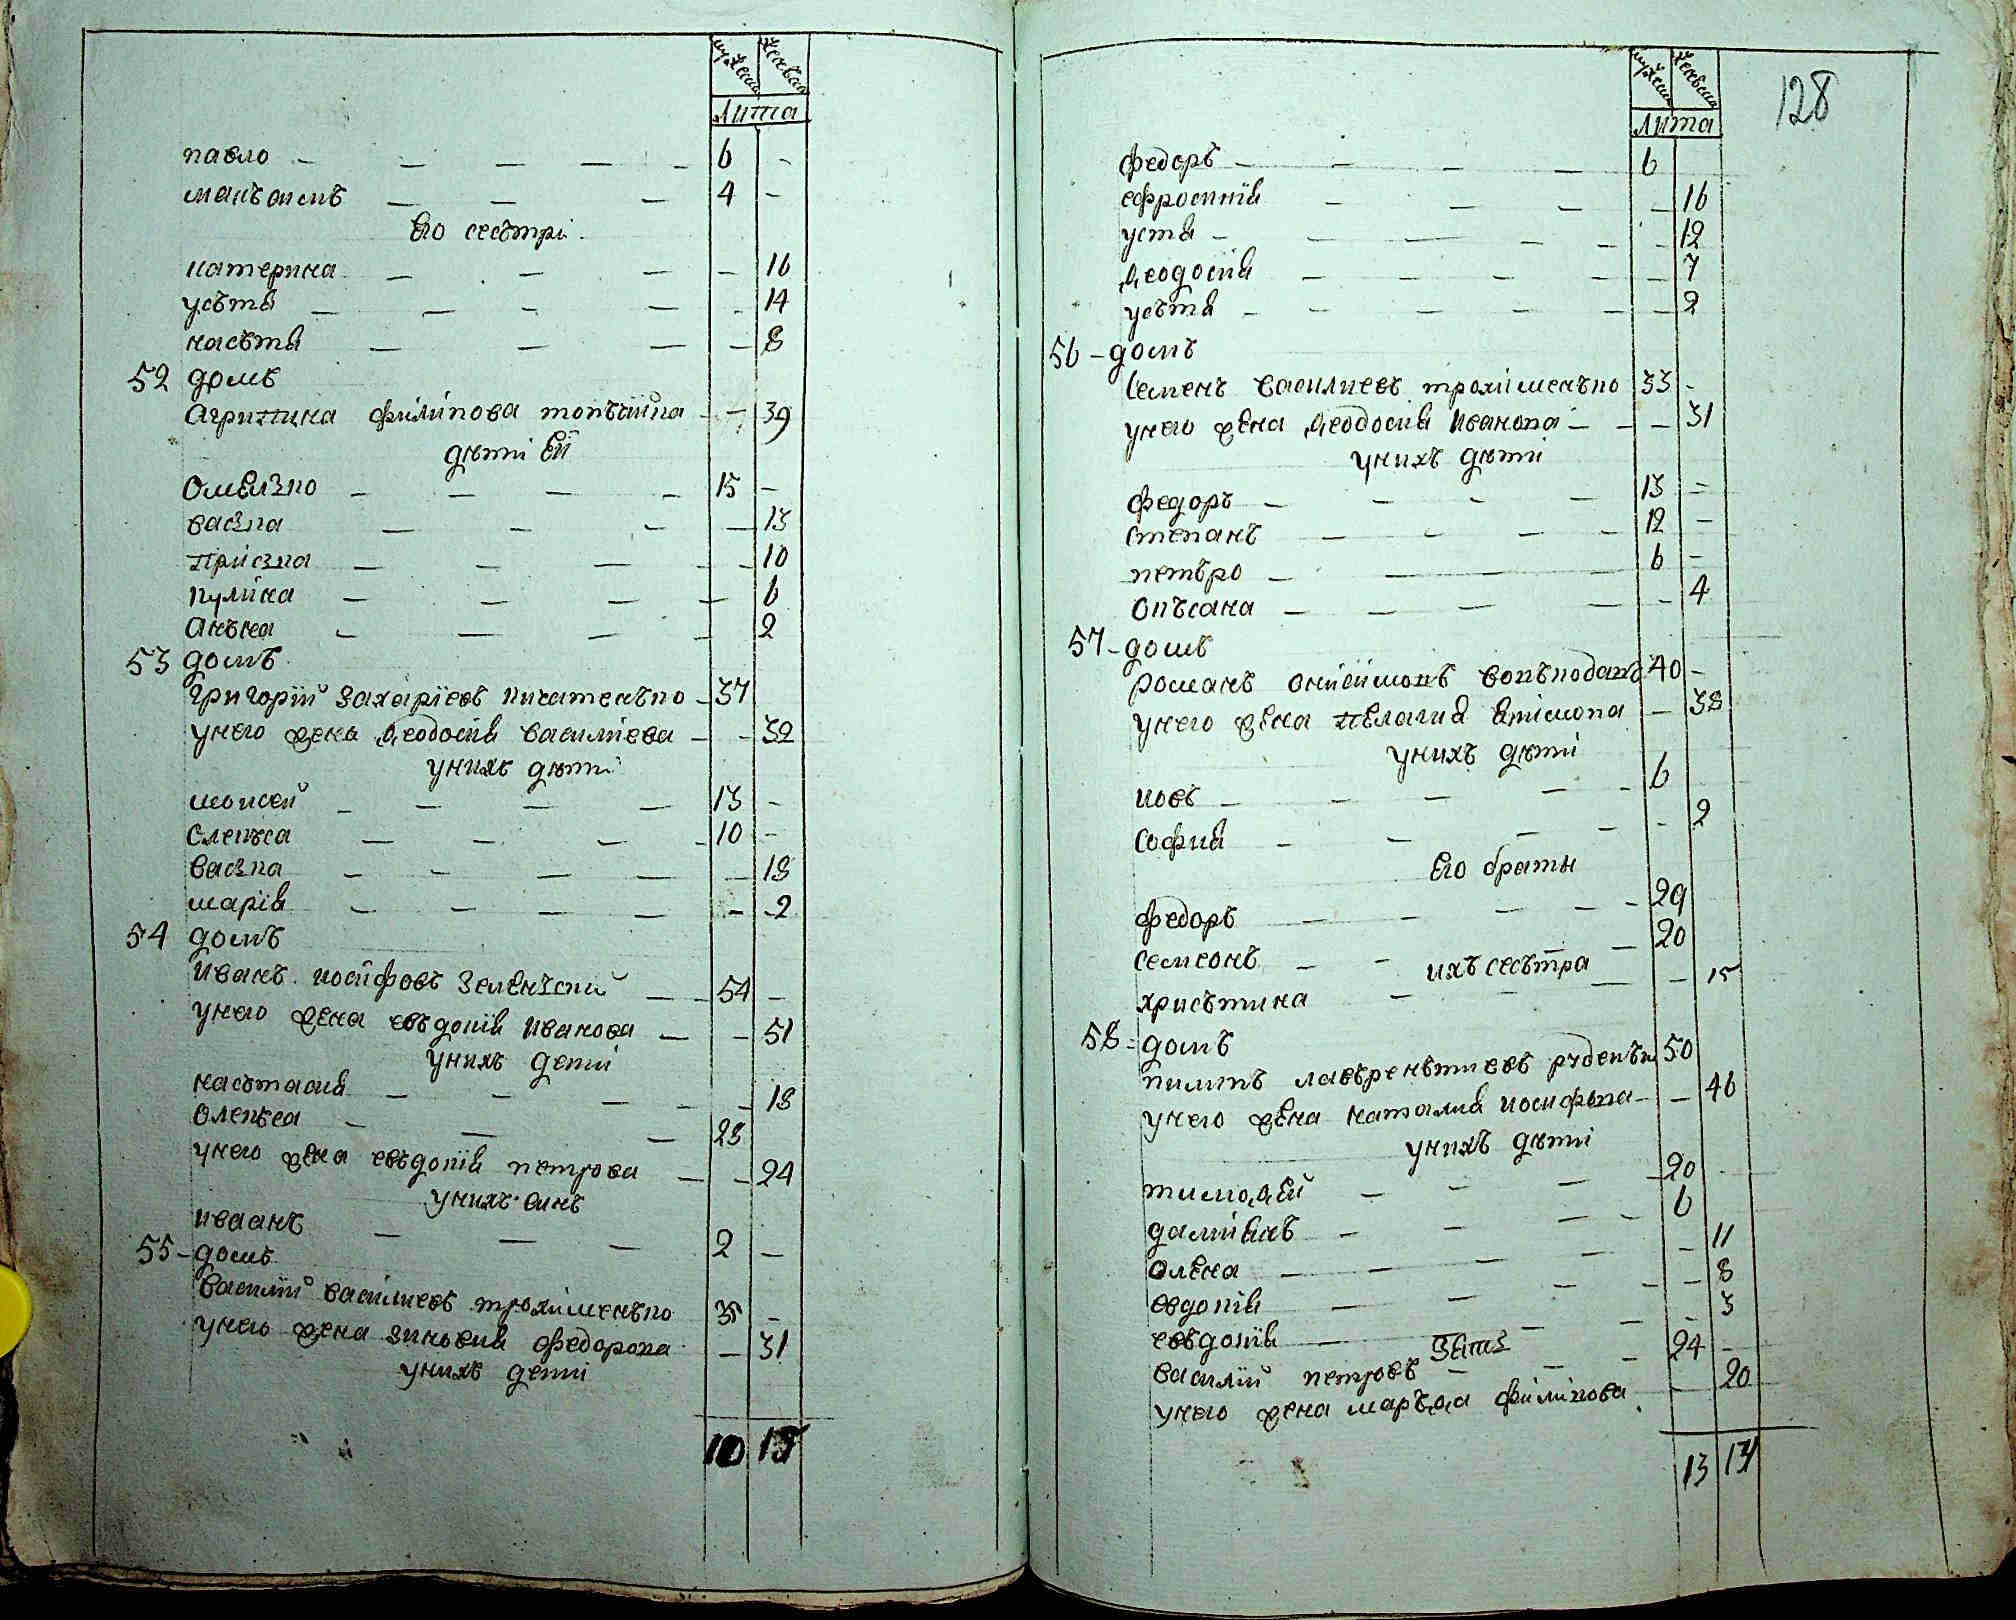 мужеска женска
Лита
павло — — — — — 6 -
манъсимъ — — — 4 -
Его сесътрі
катерина — — — — 16
усътѣ — — — — - 14
насътѣ — — — — 8
52 домъ
Агрипина филіпова — — 39
дѣти Ей
Омелзко — — — — 15 —
васка — — — — 13
Приска — — — — — 10
кулина — — — — 6
Анъна — — — — 2
53 домъ
Григорий Захаріевъ Никатенъко — 37
унего жена Ѳеодосія василиева — - 32
унихъ дѣти
моисей — — — — 13 -
Олекъса — — — — 10 -
васка — — — — — 18
марія — — — — — 2
54 домъ
Иванъ иосифовъ Зеленъский — — 54 —
унего жена евъдокія Иванова — — 51
унихъ дети
насътасия — — — — - 18
Олекъса — — — 28
унего жена евъдокія петрова — — 24
унихъ синъ
иваанъ — — — 2 —
55 - домъ
василий василиевъ трохименъко 35 -
унего жена зиновия федорова — 31
унихъ дети
10 15
128
мужеска женска
Лита
федоръ — — — — 6
ефросинія — — — — 16
устя — — — — — — 12
Ѳеодосія — — — — — 7
усътя — — — — — — 2
56 - домъ
Семенъ василиевъ трохименъко 33 -
унего жена Ѳеодосия Иванова — — — 31
унихъ дѣти
федоръ — — - — 13 —
Степанъ — - — — 12 —
петъро — — — 6 —
Окъсана — — — — — 4
57 - домъ
романъ 40 -
унего жена пелагия — 38
унихъ дѣти
иовъ — — — — - 6
София — — — — - 2
Его браты
федоръ — — — — — 29
семионъ — - — — 20
ихъ сесътра
хрисътина — — — — 15
58 - домъ
пилипъ лавъренътиевъ 50
унего жена наталия иосифова — — 46
унихъ дѣти
тимоѲей — — — — 20
даміянъ — — — - 6
Олена — — — — — 11
овдокія — — — — — 8
евъдокія — — — - 3
Зять
василий петровъ — — — 24 -
унего жена маръѲа филіпова — 20
13 14